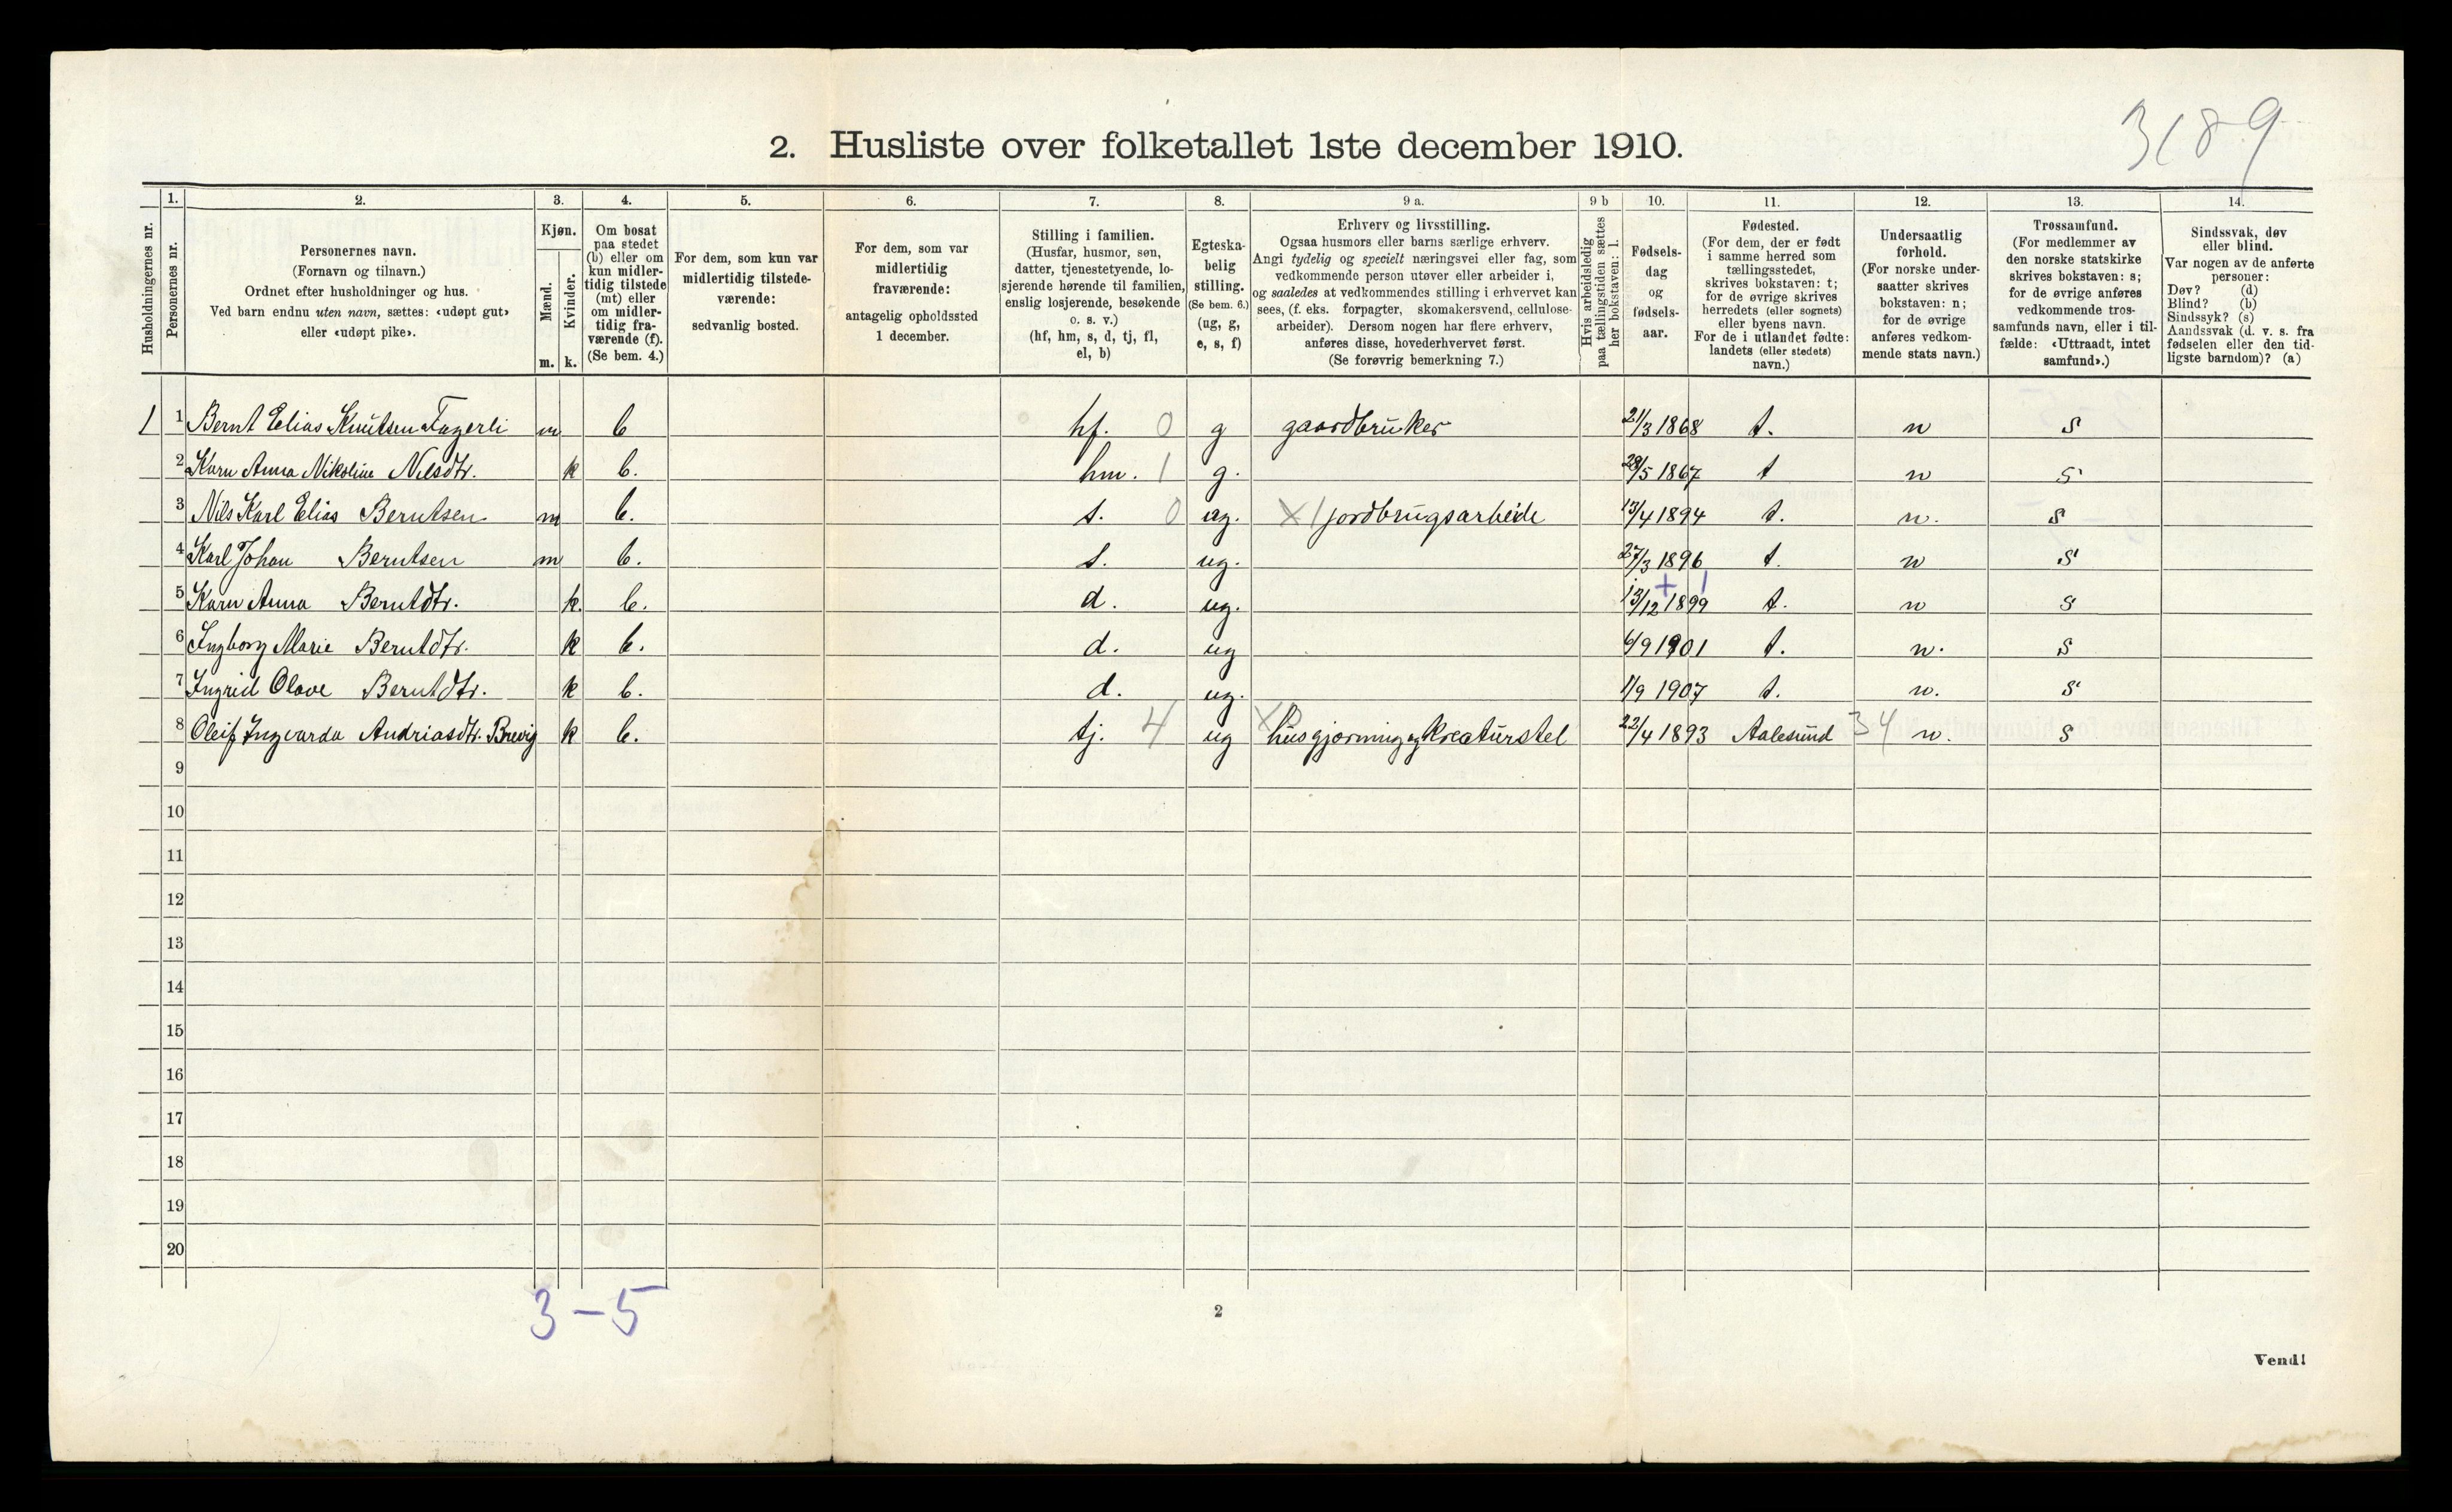 3189
2. Husliste over folketallet 1ste december 1910.
Husholdningernes nr.
1.
Personernes nr.
2.
Personernes navn.
(Fornavn og tilnavn.)
Ordnet efter husholdninger og hus.
Ved barn endnu uten navn, sættes: «udøpt gut»
eller «udøpt pike».
3.
Kjøn.
Mænd.
Kvinder.
m. k.
4.
Om bosat
paa stedet
(b) eller om
kun midler-
tidig tilstede
(mt) eller
om midler-
tidig fra-
værende (f).
(Se bem. 4.)
5.
For dem, som kun var
midlertidig tilstede-
værende:
sedvanlig bosted.
6.
For dem, som var
midlertidig
fraværende:
antagelig opholdssted
1 december.
7.
Stilling i familien.
(Husfar, husmor, søn,
datter, tjenestetyende, lo-
sjerende hørende til familien,
enslig losjerende, besøkende
o. s. v.)
(hf, hm, s, d, tj, fl,
el, b)
8.
Egteska-
belig
stilling.
(Se bem. 6.)
(ug, g,
e, s, f)
9 a.
Erhverv og livsstilling.
Ogsaa husmors eller barns særlige erhverv.
Angi tydelig og specielt næringsvei eller fag, som
vedkommende person utøver eller arbeider i,
og saaledes at vedkommendes stilling i erhvervet kan
sees, (f. eks. forpagter, skomakersvend, cellulose-
arbeider). Dersom nogen har flere erhverv,
anføres disse, hovederhvervet først.
(Se forøvrig bemerkning 7.)
9 b
Hvis arbeidsledig
paa tællingstiden sættes
her bokstaven: l.
10.
Fødsels-
dag
og
fødsels-
aar.
11.
Fødested.
(For dem, der er født
i samme herred som
tællingsstedet,
skrives bokstaven: t;
for de øvrige skrives
herredets (eller sognets)
eller byens navn.
For de i utlandet fødte:
landets (eller stedets)
navn.)
12.
Undersaatlig
forhold.
(For norske under-
saatter skrives
bokstaven: n;
for de øvrige
anføres vedkom-
mende stats navn.)
13.
Trossamfund.
(For medlemmer av
den norske statskirke
skrives bokstaven: s;
for de øvrige anføres
vedkommende tros-
samfunds navn, eller i til-
fælde: «Uttraadt, intet
samfund».)
14.
Sindssvak, døv
eller blind.
Var nogen av de anførte
personer:
Døv? (d)
Blind? (b)
Sindssyk? (s)
Aandssvak (d. v. s. fra
fødselen eller den tid-
ligste barndom)? (a)
1 1 Bernt Elias Knutsen Fagerli m b hf. 0 g gaardbruker 21/3 1868 t. n s
2 Karn Anna Nikoline Nilsdtr. k b. hm. 1 g. 28/5 1867 t n s
3 Nils Karl Elias Berntsen m b. s. 0 ug. X 1 jordbrugsarbeide 13/4 1894 t. n. s
4 Karl Johan Berntsen m b. s. ug. 27/3 1896 t. n s
5 Karn Anna Berntdtr. k. b. d. ug. 13/12 1899 + 1 t. n s
6 Ingborg Marie Berntdtr. k b. d. ug 6/9 1901 t. n. s
7 Ingrid Olave Berntdtr. k b. d. ug. 1/9 1907 t. n. s
8 Oleif Ingvarda Andriasdtr. Brevig k b. tj. 4 ug X husgjerning og kreaturstel 22/4 1893 Aalesund 34 n. s
9
10
11
12
13
14
15
16
17
18
19
20
3 – 5
2
Vend!